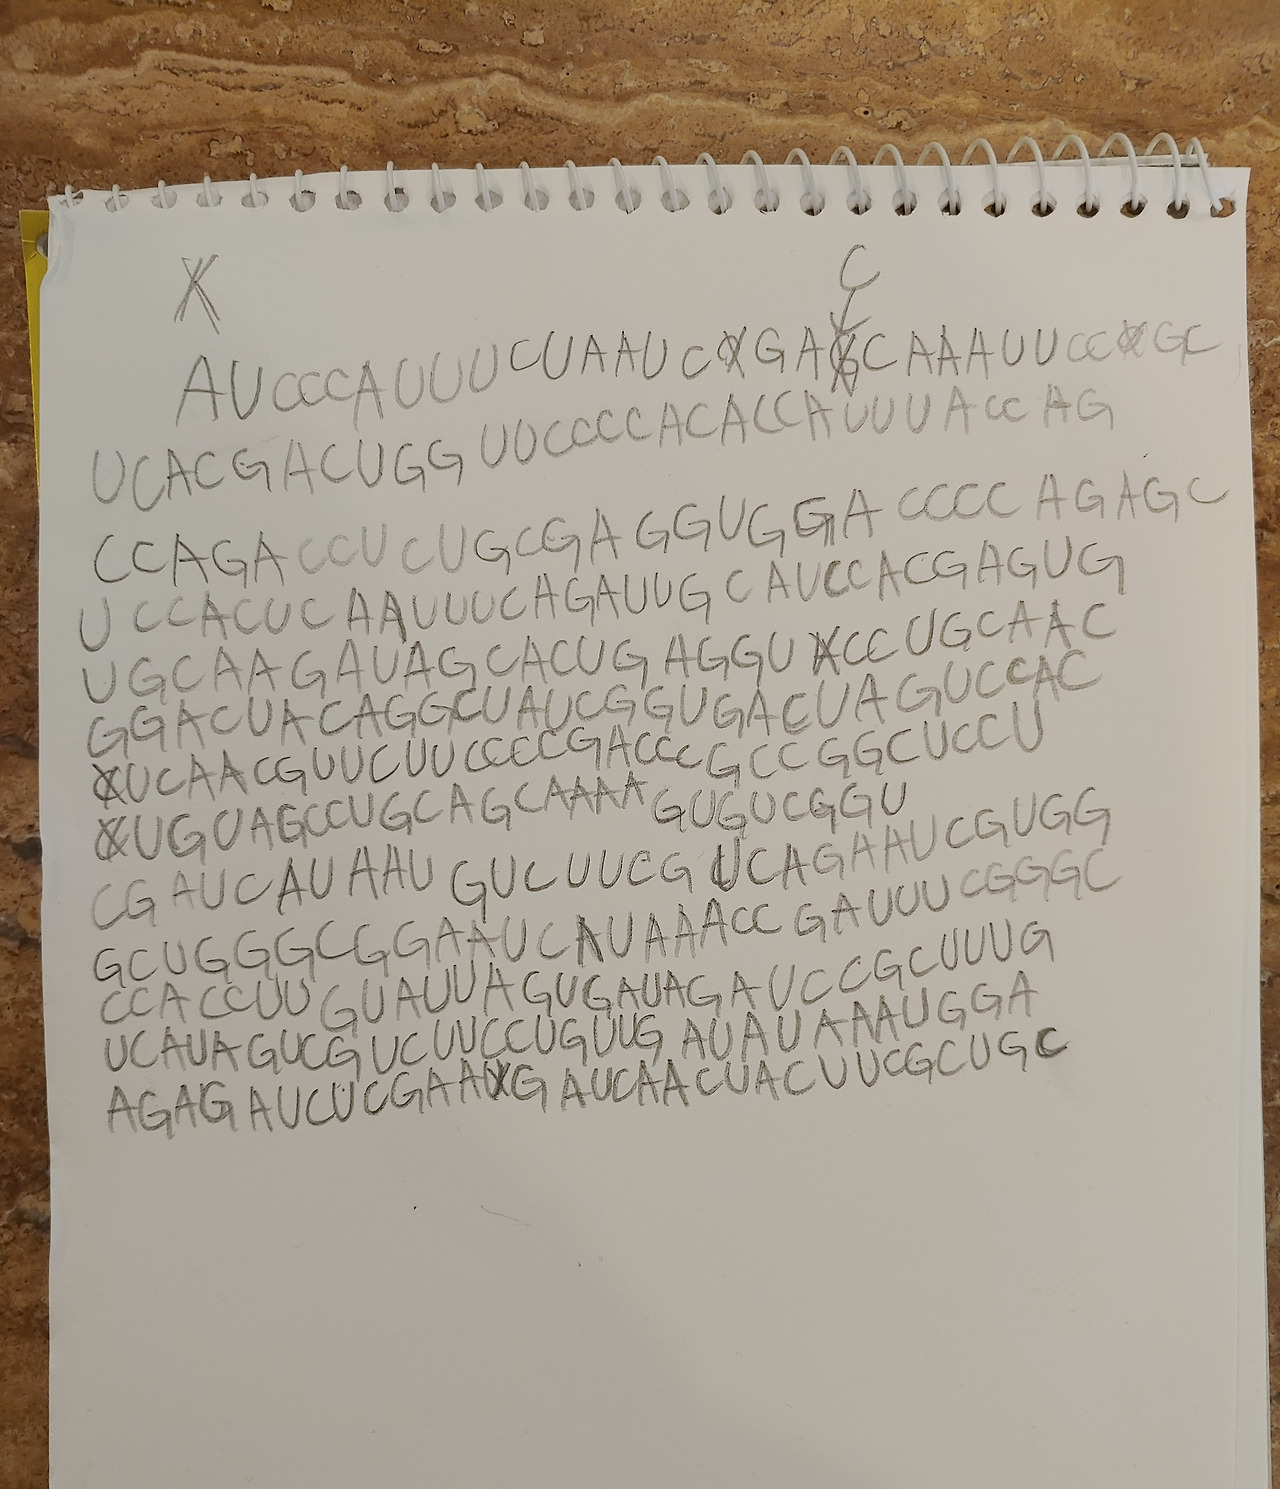 C
AUCCCAUUUCUAAUCGACCAAAUUCCGC
UCACGACUGGUUCCCCACACCAUUUACCAG
CCAGACCUCUGCGAGGUGGACCCCAGAGC
UCCACUCAAUUUCAGAUUGCAUCCACGAGUG
UGCAAGAUAGCACUGAGGUCCUGCAAC
GGACUACAGGCUAUCGGUGACUAGUCCAC
UCAACGUUCUUCCCCGACCCGCCGGCUCCU
UGUAGCCUGCAGCAAAAGUGUCGGU
CGAUCAUAAUGUCUUCGUCAGAAUCGUGG
GCUGGGCGGAAUCAUAAACCGAUUUCGGGC
CCACCUUGUAUUAGUGAUAGAUCCGCUUUG
UCAUAGUCGUCUUCCUGUUGAUAUAAAUGGA
AGAGAUCUCGAAGAUCAACUACUUCGCUGC